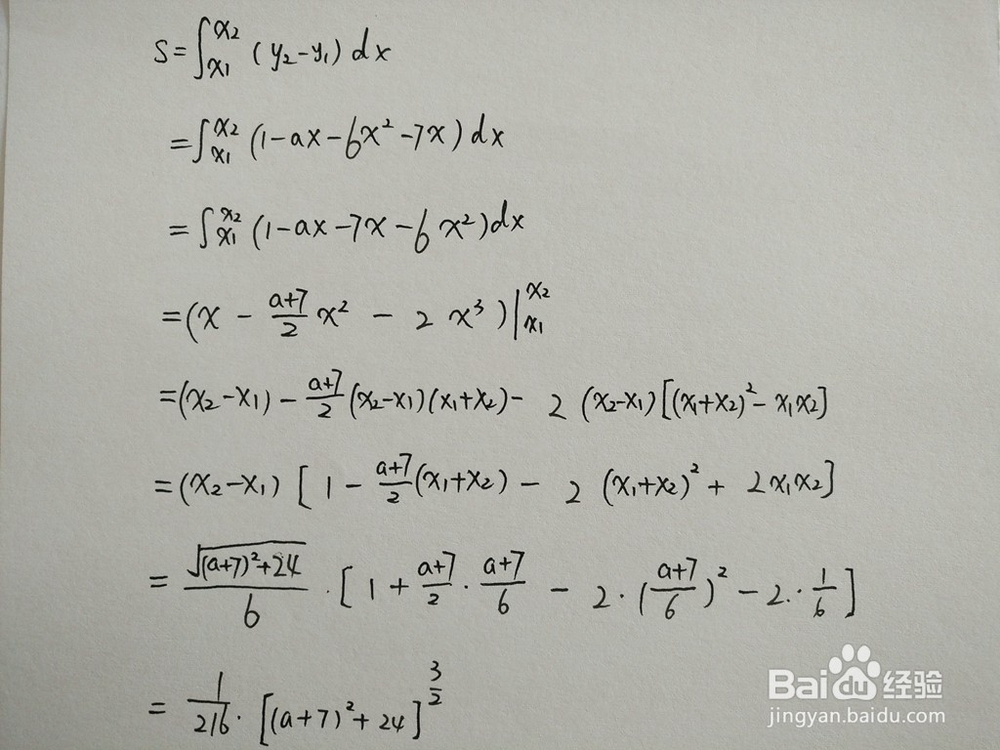 S=∫_{x1}^{x2} (y₂-y₁) dx
=∫_{x1}^{x2} (1-ax-6x²-7x) dx
=∫_{x1}^{x2} (1-ax-7x-6x²)dx
=(x - \frac{a+7}{2} x² - 2 x³)|_{x1}^{x2}
=(x₂-x₁) - \frac{a+7}{2} (x₂-x₁)(x₁+x₂) - 2 (x₂-x₁)[(x₁+x₂)²-x₁x₂]
=(x₂-x₁) [1 - \frac{a+7}{2} (x₁+x₂) - 2 (x₁+x₂)² + 2x₁x₂]
= \frac{\sqrt{(a+7)²+24}}{6} · [1 + \frac{a+7}{2} · \frac{a+7}{6} - 2 · (\frac{a+7}{6})² - 2 · \frac{1}{6}]
= \frac{1}{216} · [(a+7)²+24]^{\frac{3}{2}}
Baidu经验
jingyan.baidu.com